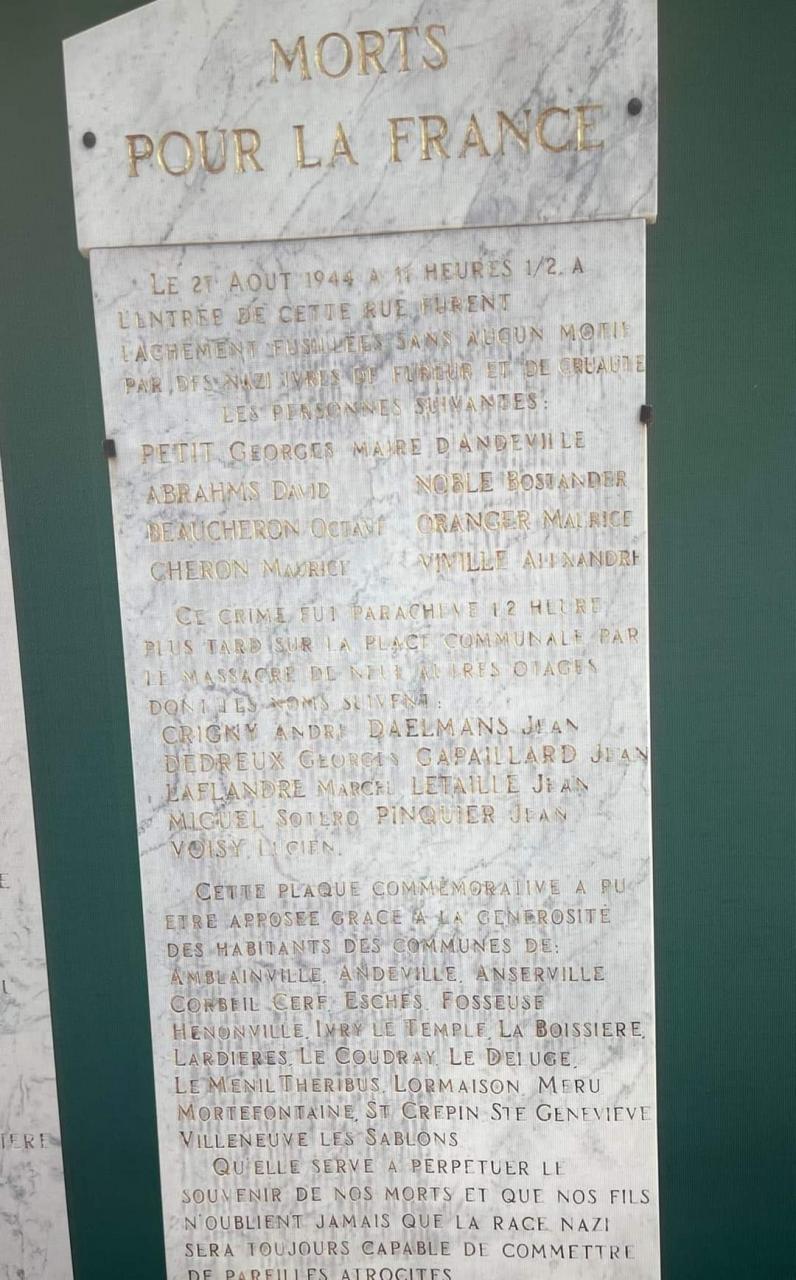 MORTS
POUR LA FRANCE
LE 27 AOUT 1944 A 11 HEURES 1/2, A
L'ENTREE DE CETTE RUE FURENT
LACHEMENT FUSILLEES SANS AUCUN MOTIF
PAR DES NAZI IVRES DE FUREUR ET DE CRUAUTE
LES PERSONNES SUIVANTES:
PETIT GEORGES MAIRE D'ANDEVILLE
ABRAHMS DAVID NOBLE BOSTANDER
BEAUCHERON OCTAVE ORANGER MAURICE
CHERON MAURICE VIVILLE ALEXANDRE
CE CRIME FUT PARACHEVE 1 2 HEURE
PLUS TARD SUR LA PLACE COMMUNALE PAR
LE MASSACRE DE NEUF AUTRES OTAGES
DONT LES NOMS SUIVENT:
CRIGNY ANDRE DAELMANS JEAN
DEDREUX GEORGES GAPAILLARD JEAN
LAFLANDRE MARCEL LETAILLE JEAN
MIGUEL SOTERO PINQUIER JEAN
VOISY LUCIEN.
CETTE PLAQUE COMMEMORATIVE A PU
ETRE APPOSEE GRACE A LA GENEROSITÉ
DES HABITANTS DES COMMUNES DE:
AMBLAINVILLE, ANDEVILLE, ANSERVILLE
CORBEIL CERF, ESCHES, FOSSEUSE
HENONVILLE, IVRY LE TEMPLE, LA BOISSIERE,
LARDIERES, LE COUDRAY, LE DELUGE,
LE MENIL THERIBUS, LORMAISON, MERU
MORTEFONTAINE, ST CREPIN STE GENEVIEVE
VILLENEUVE LES SABLONS
QU'ELLE SERVE A PERPETUER LE
SOUVENIR DE NOS MORTS ET QUE NOS FILS
N'OUBLIENT JAMAIS QUE LA RACE NAZI
SERA TOUJOURS CAPABLE DE COMMETTRE
DE PAREILLES ATROCITES